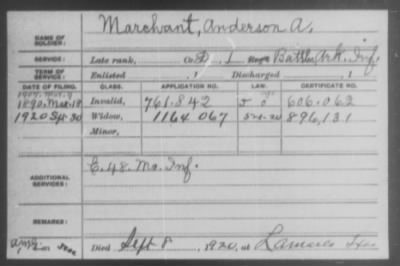 NAME OF SOLDIER: Marchant, Anderson A.
SERVICE: Late rank, Co. D, 1 Reg't Battl. Ark. Inf.
TERM OF SERVICE: Enlisted , 1 Discharged , 1
DATE OF FILING. CLASS. APPLICATION NO. LAW. CERTIFICATE NO.
1890. Mar. 18 Invalid, 761.842 606.062
1920 Sept 30 Widow, 1164.067 896,131
Minor,
ADDITIONAL SERVICES: E. 48. Mo. Inf.
REMARKS:
Died Sept 8, 1920, at